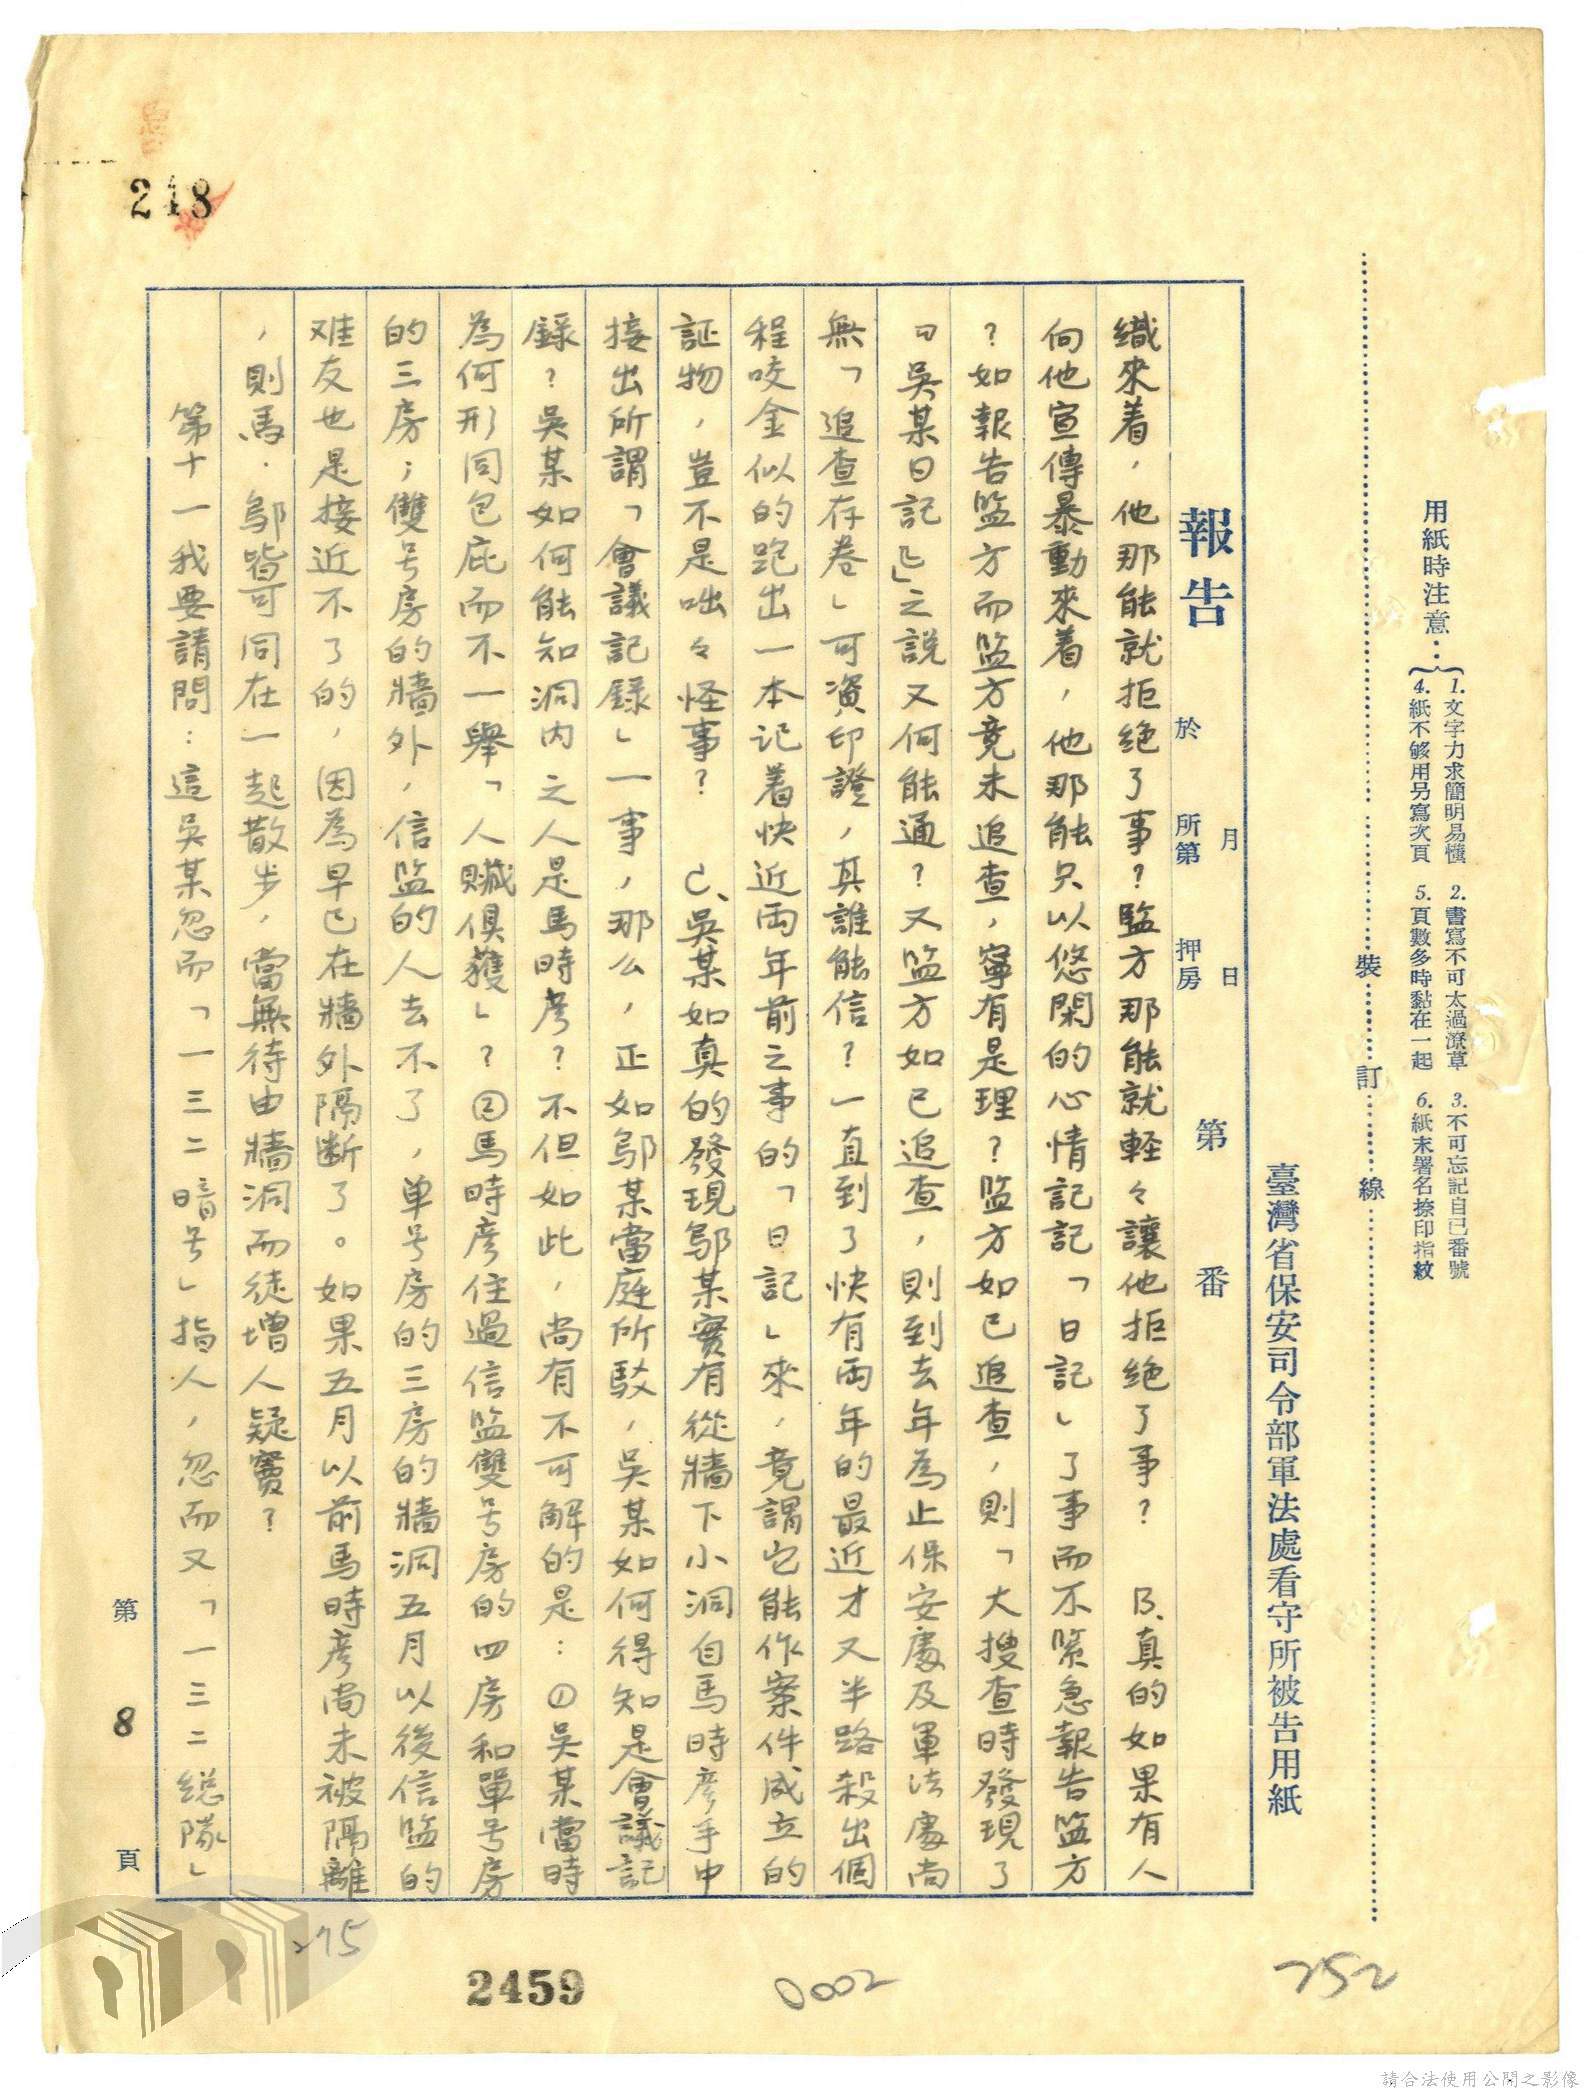 用紙時注意：
1.文字力求簡明易懂 2.書寫不可太過潦草 3.不可忘記自已番號
4.紙不够用另寫次頁 5.頁數多時黏在一起 6.紙末署名捺印指紋
裝訂線
臺灣省保安司令部軍法處看守所被告用紙
報告 第 番
月 日
於 所第 押房
織來着，他那能就拒绝了事？監方那能就軽々讓他拒绝了事？　B、真的如果有人
向他宣傳暴動來着，他那能只以悠閑的心情記記「日記」了事而不緊急報告监方
？如報告监方而监方竟未追查，寧有是理？监方如已追查，則「大搜查時發現了
『吳某日記』」之説又何能通？又监方如已追查，則到去年為止保安處及軍法處尚
無「追查存卷」可資印證，其誰能信？一直到了快有兩年的最近才又半路殺出個
程咬金似的跑出一本记着快近兩年前之事的「日記」來，竟謂它能作案件成立的
証物，豈不是咄々怪事？　C、吳某如真的發現鄔某實有從牆下小洞自馬時彦手中
接出所謂「會議記録」一事，那么，正如鄔某當庭所駁，吳某如何得知是會議記
錄？吳某如何能知洞内之人是馬時彦？不但如此，尚有不可解的是：①吳某當時
為何形同包庇而不一舉「人贓俱獲」？②馬時彦住過信监雙号房的四房和單号房
的三房；雙号房的牆外，信监的人去不了，单号房的三房的牆洞五月以後信监的
难友也是接近不了的，因為早已在牆外隔断了。如果五月以前馬時彦尚未被隔離
，則馬．鄔皆可同在一起散步，當無待由牆洞而徒增人疑竇？
第十一我要請問：這吳某忽而「一三二暗号」指人，忽而又「一三二総隊」
第 8 頁
248
275
2459
0002
252
請合法使用公開之影像